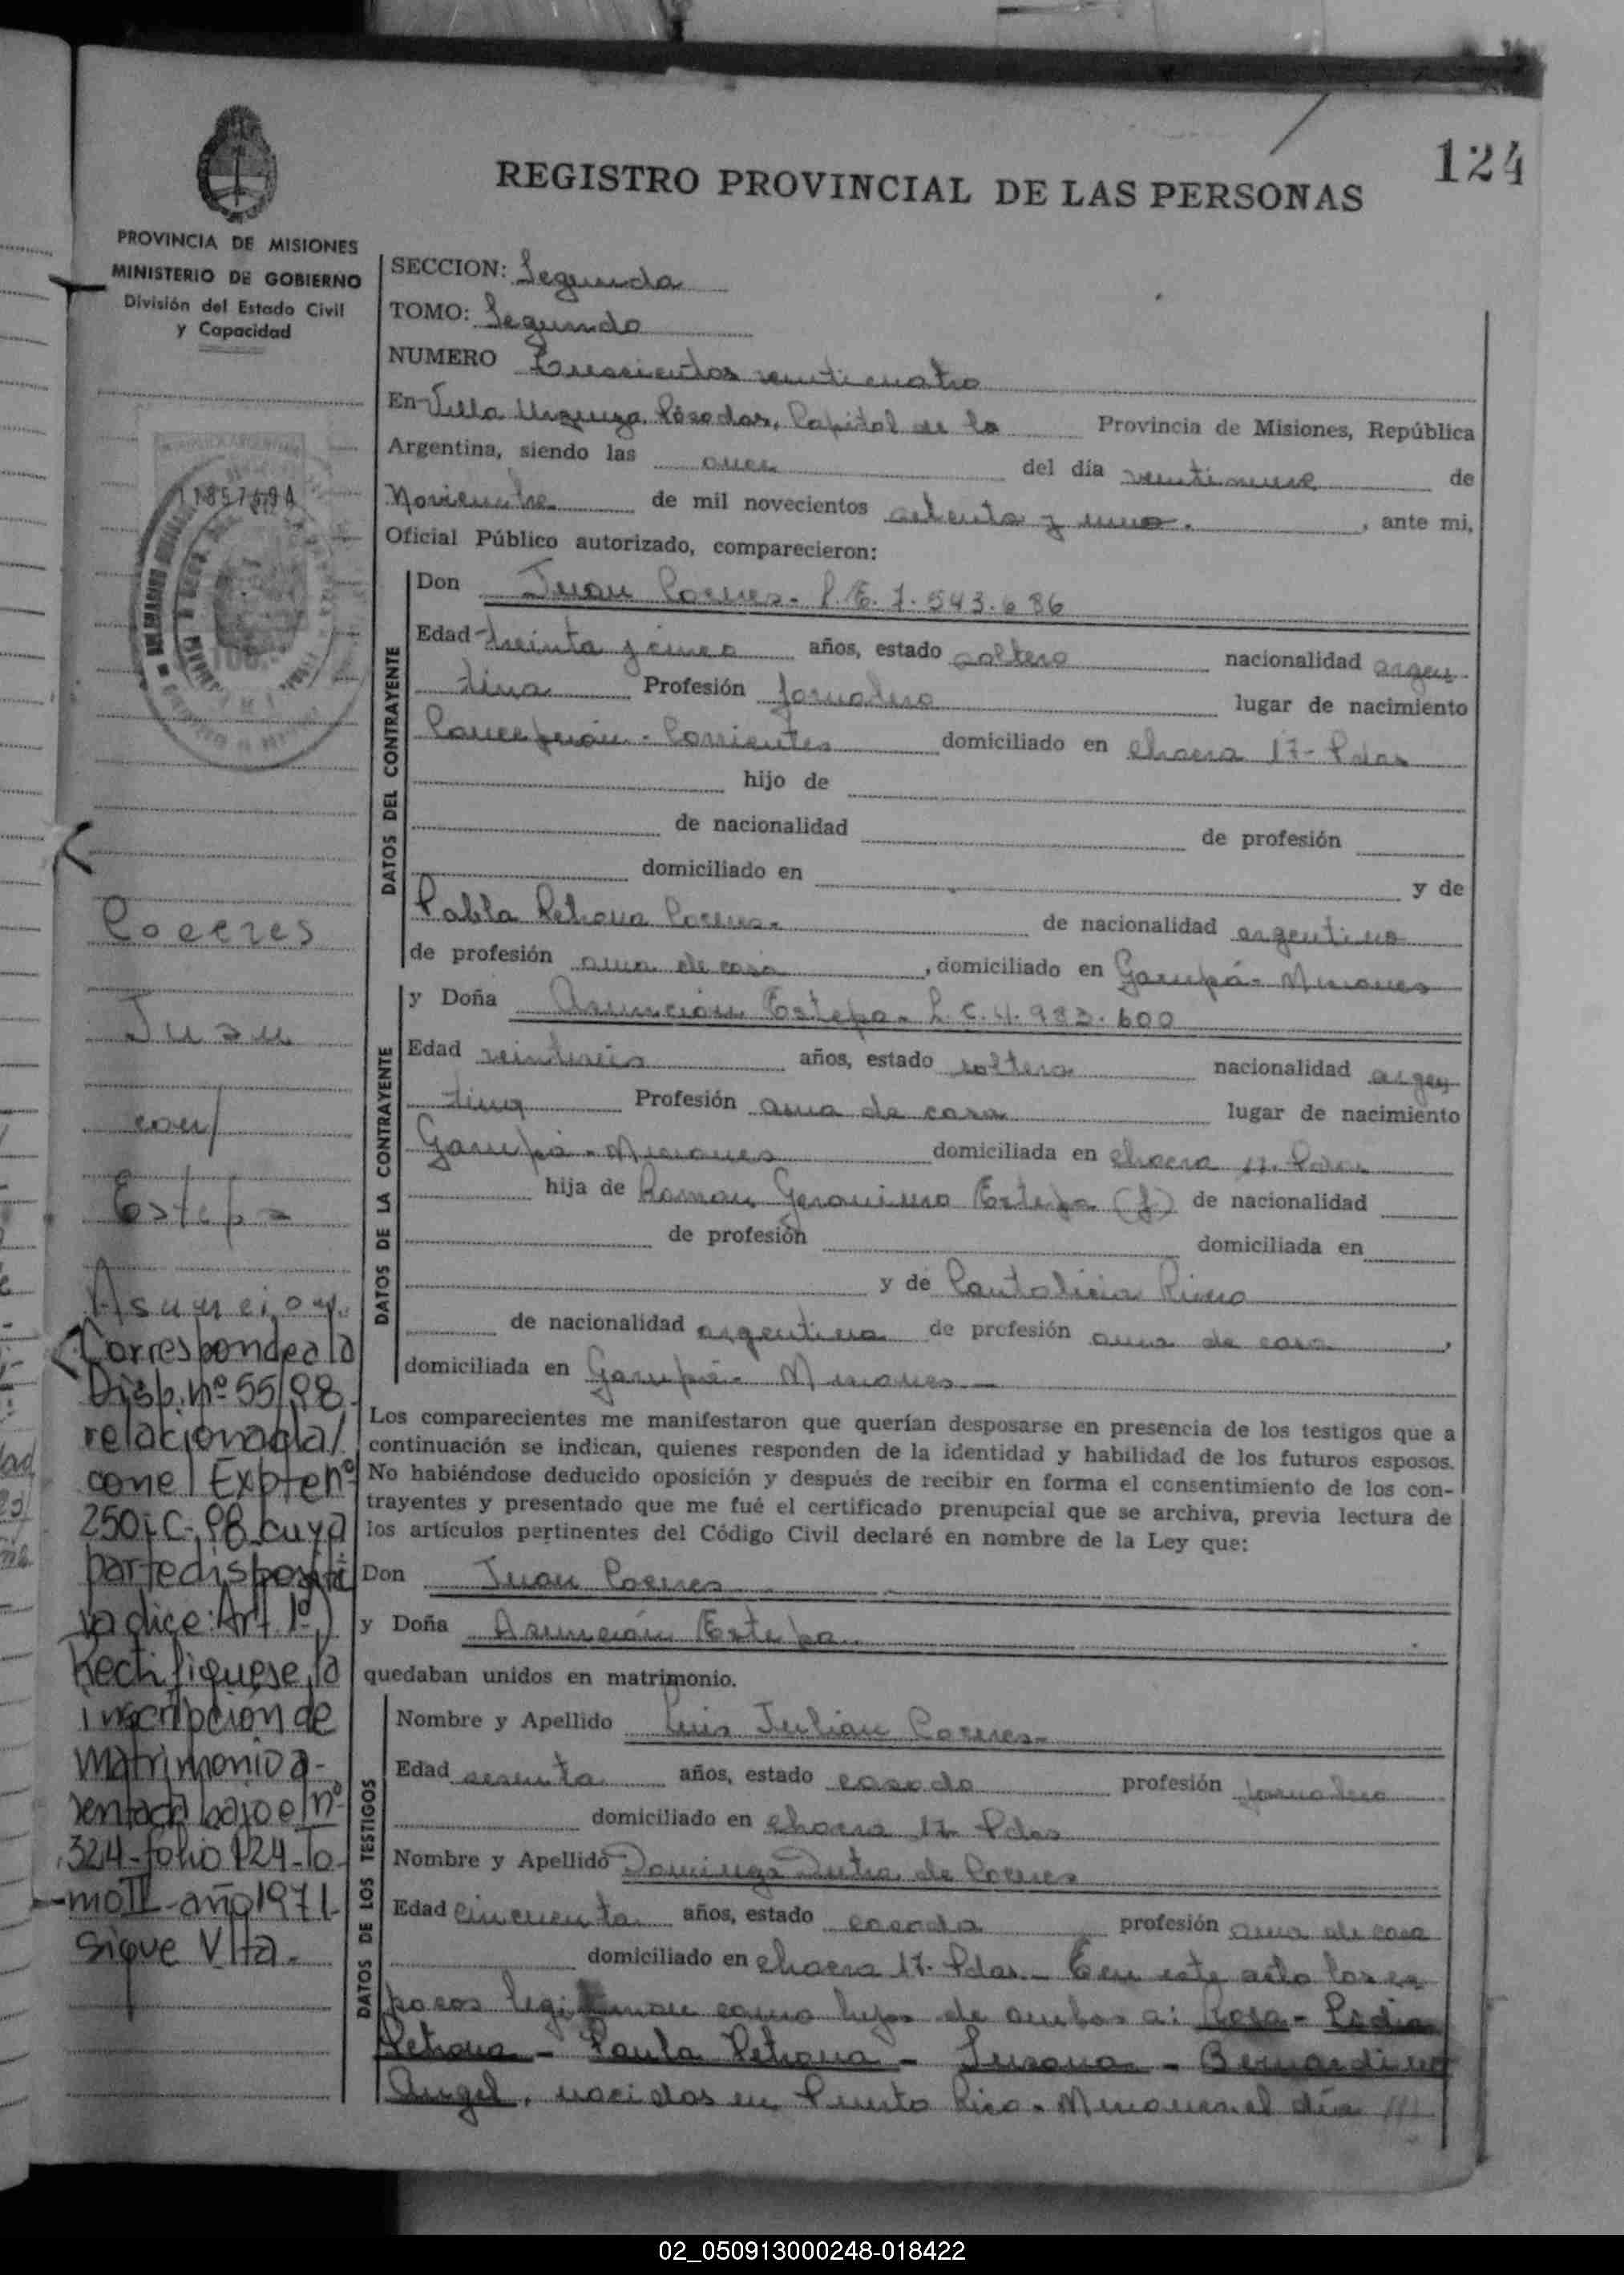 124
REGISTRO PROVINCIAL DE LAS PERSONAS
PROVINCIA DE MISIONES
MINISTERIO DE GOBIERNO
División del Estado Civil
y Capacidad
SECCION: Segunda
TOMO: Segundo
NUMERO Trescientos veinticuatro
En Villa Urquiza, Posadas, Capital de la Provincia de Misiones, República
Argentina, siendo las once del día veintinueve de
Noviembre de mil novecientos setenta y uno. , ante mi,
Oficial Público autorizado, comparecieron:
DATOS DEL CONTRAYENTE
Don Juan Caceres - L.E. 7.543.686
Edad treinta y cinco años, estado soltero nacionalidad argen
tina Profesión Jornalero lugar de nacimiento
Concepción - Corrientes domiciliado en chacra 17 - Pdas
hijo de
de nacionalidad de profesión
domiciliado en y de
Pabla Petrona Caceres - de nacionalidad argentina
de profesión ama de casa , domiciliado en Garupá - Misiones
DATOS DE LA CONTRAYENTE
y Doña Asunción Estepa - L.C. 4.983.600
Edad veintiseis años, estado soltera nacionalidad argen
tina Profesión ama de casa lugar de nacimiento
Garupá - Misiones domiciliada en chacra 17 - Pdas
hija de Ramon Geronimo Estepa (f) de nacionalidad
de profesión domiciliada en
y de Pantalicia Rivero
de nacionalidad argentina de profesión ama de casa ,
domiciliada en Garupá - Misiones -
Los comparecientes me manifestaron que querían desposarse en presencia de los testigos que a
continuación se indican, quienes responden de la identidad y habilidad de los futuros esposos.
No habiéndose deducido oposición y después de recibir en forma el consentimiento de los con-
trayentes y presentado que me fué el certificado prenupcial que se archiva, previa lectura de
los artículos pertinentes del Código Civil declaré en nombre de la Ley que:
Don Juan Caceres
y Doña Asunción Estepa
quedaban unidos en matrimonio.
DATOS DE LOS TESTIGOS
Nombre y Apellido Luis Julian Caceres -
Edad sesenta años, estado casado profesión jornalero
domiciliado en chacra 17 Pdas
Nombre y Apellido Dominga Dutra de Caceres
Edad cincuenta años, estado casada profesión ama de casa
domiciliado en chacra 17 - Pdas - En este acto los es
posos legitiman como hijos de ambos a: Rosa -
Petrona - Paula Petrona - Susana - Bernardino
Angel, nacidos en Puerto Rico - Misiones el día
Caceres
Juan
con
Estepa
Asuncion
Corresponde a la
Disp. nº 55/98
relacionada/
con el Expte nº
250-C-98 cuya
parte dispositi
va dice: Art. 1º)
Rectifiquese la
inscripción de
matrimonio a-
sentada bajo el nº
324 - folio 124 - To-
mo II - año 1971 -
Sigue Vlta -
02_050913000248-018422